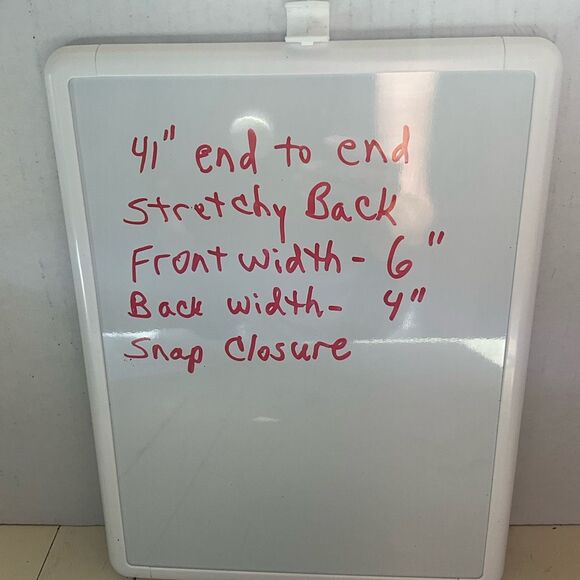 41" end to end
Stretchy Back
Front width - 6"
Back width - 4"
Snap Closure